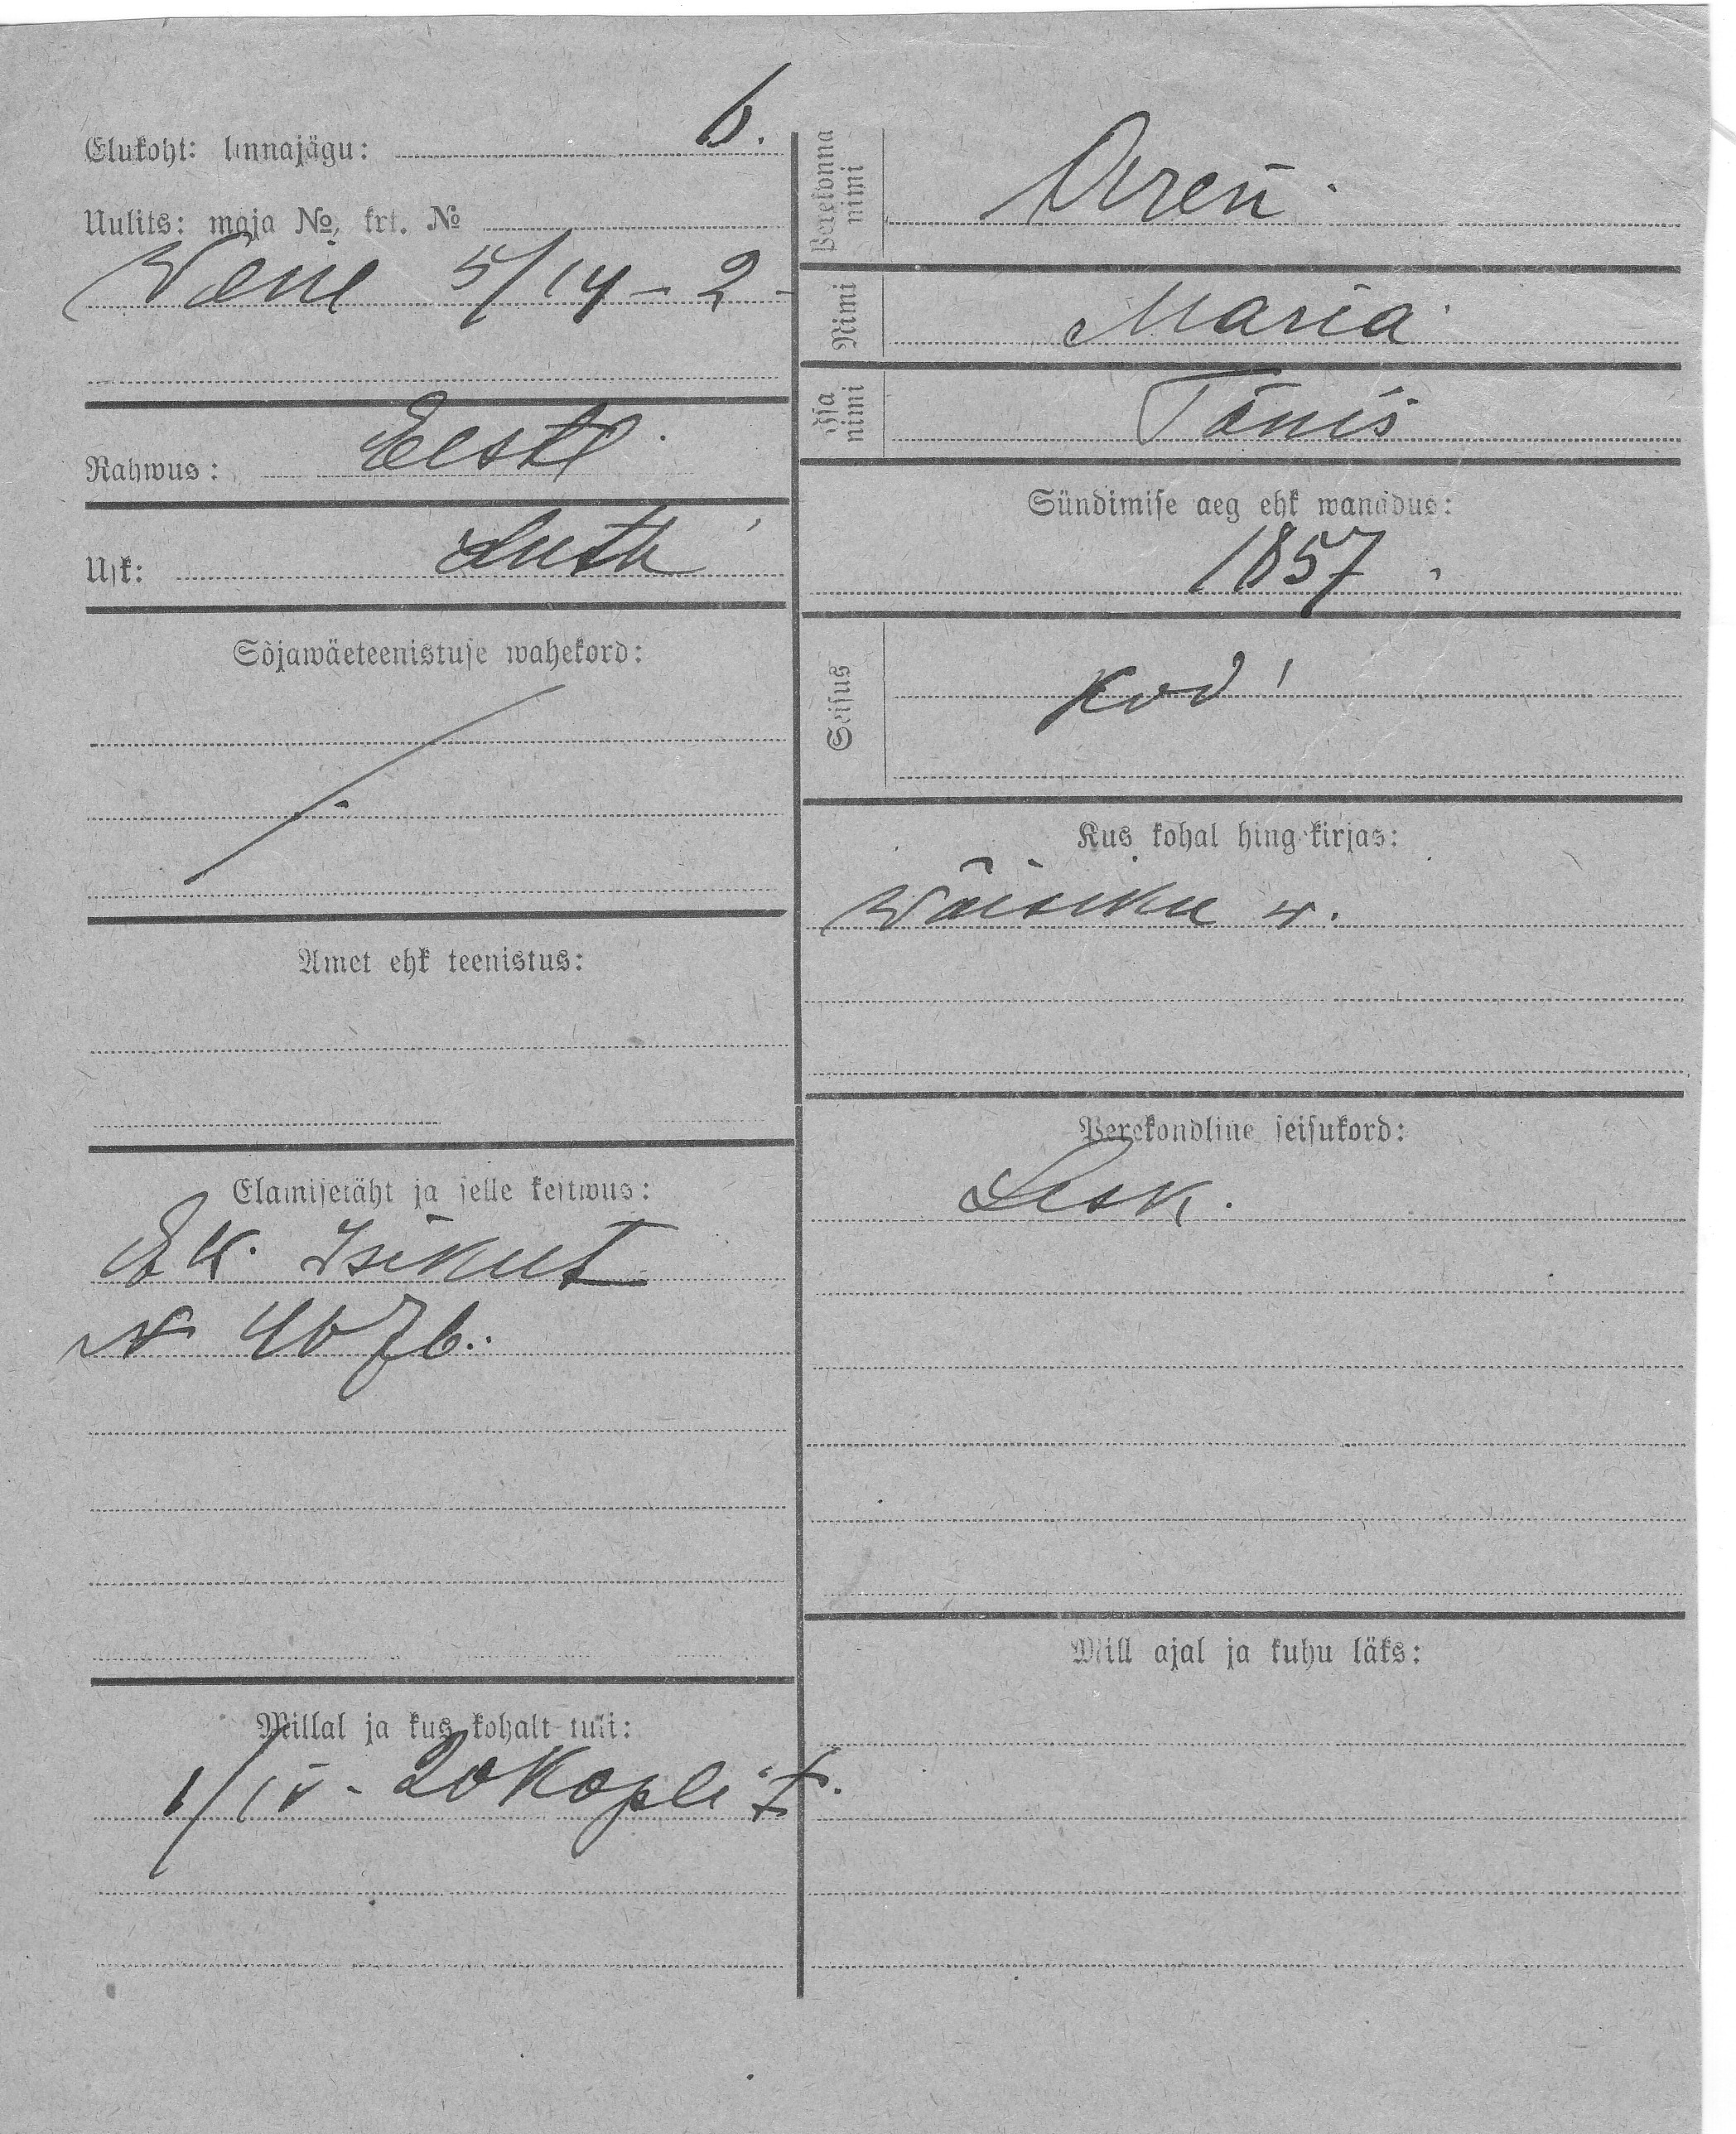 Elukoht: linnajagu: 6.
Uulits: maja №, krt. №
Wene 5/14 - 2 -
Rahwus: Eesti
Usk: Luth
Sõjawäeteenistuse wahekord:
Amet ehk teenistus:
Elamisetäht ja selle kestwus:
Isikut
N 4076.
Millal ja kus kohalt tuli:
1/IV - 20 Kopli t.
Perekonna nimi
Nimi Maria
Isa nimi Tõnis
Sündimise aeg ehk wanadus:
1857.
Seisus Kod
Kus kohal hing-kirjas:
Wõisiku w.
Perekondline seisukord:
Lesk.
Mill ajal ja kuhu läks: